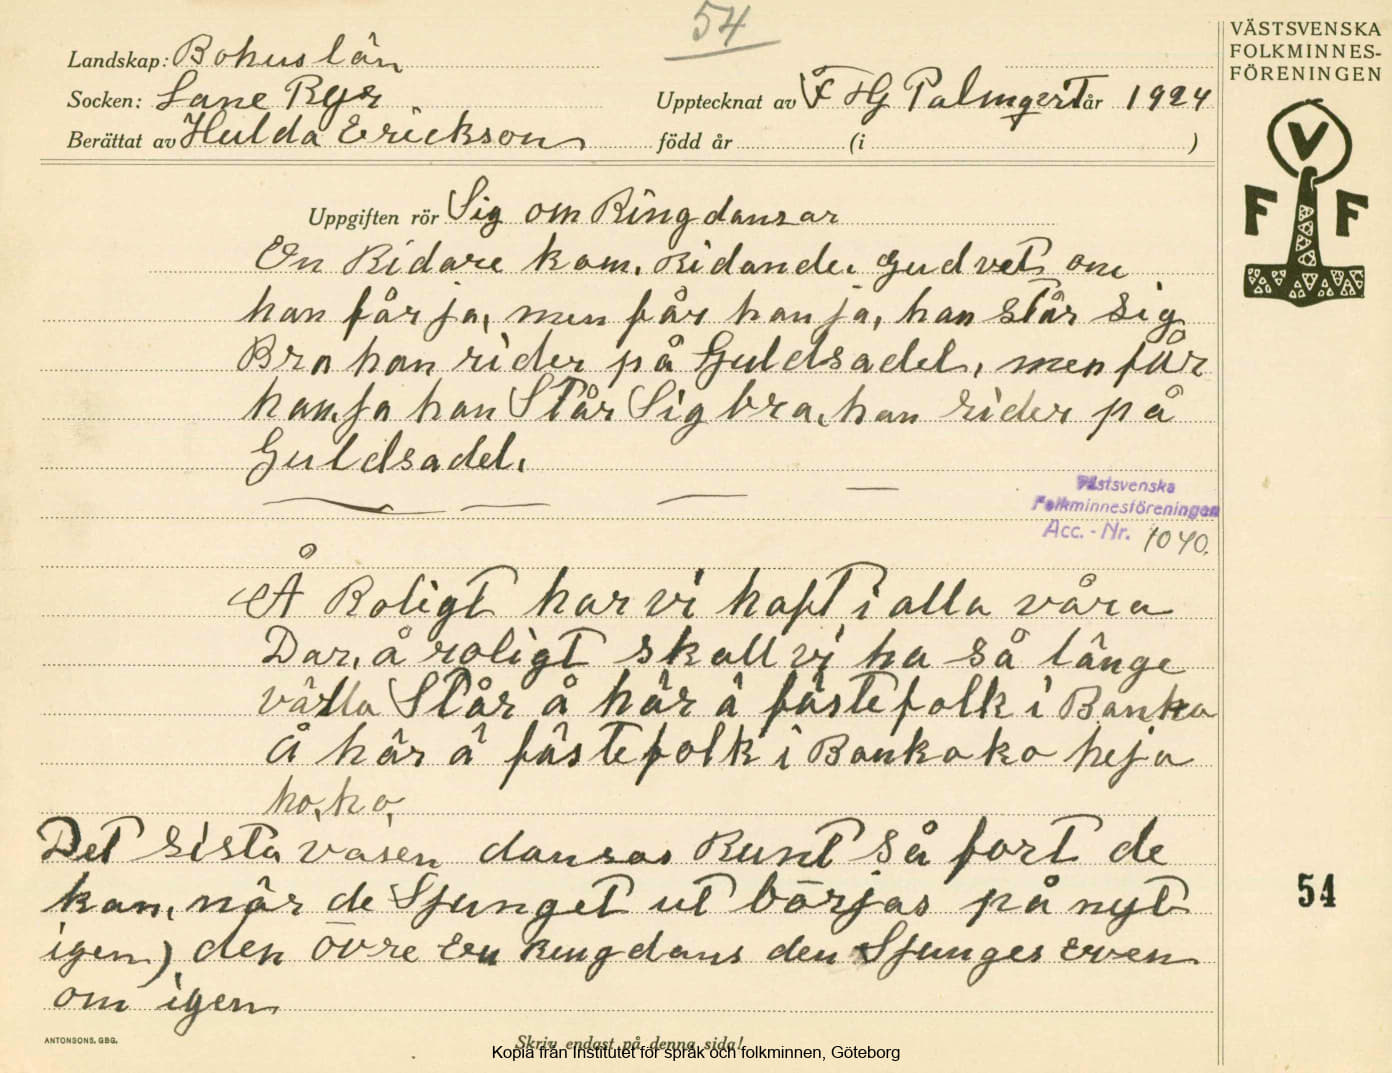 54
Landskap: Bohuslän
Socken: Lane Ryr
Upptecknat av F HG Palmqert år 1924
Berättat av Hulda Erickson född år (i )
VÄSTSVENSKA
FOLKMINNES-
FÖRENINGEN
V
F F
Uppgiften rör Sig om Ringdansar
En Ridare kom, Ridande, Gud vet om
han får ja, men får han ja, han står sig
Bra han rider på Guldsadel, men får
han ja han Står Sig bra, han rider på
Guldsadel.
Västsvenska
Folkminnesföreningen
Acc. - Nr. 1040.
Å Roligt har vi haft i alla våra
Dar, å roligt skall vi ha så länge
världa Står å här ä fästefolk i Banko
å här ä fästefolk i Bankoko heja
ho, ho,
Det sista vasen dansas Runt så fort de
kan, när de Sjunget ut börjas på nyt
igen) den övre En Ringdans den Sjunges även
om igen
54
ANTONSONS, GBG.
Skriv endast på denna sida!
Kopia från Institutet för språk och folkminnen, Göteborg